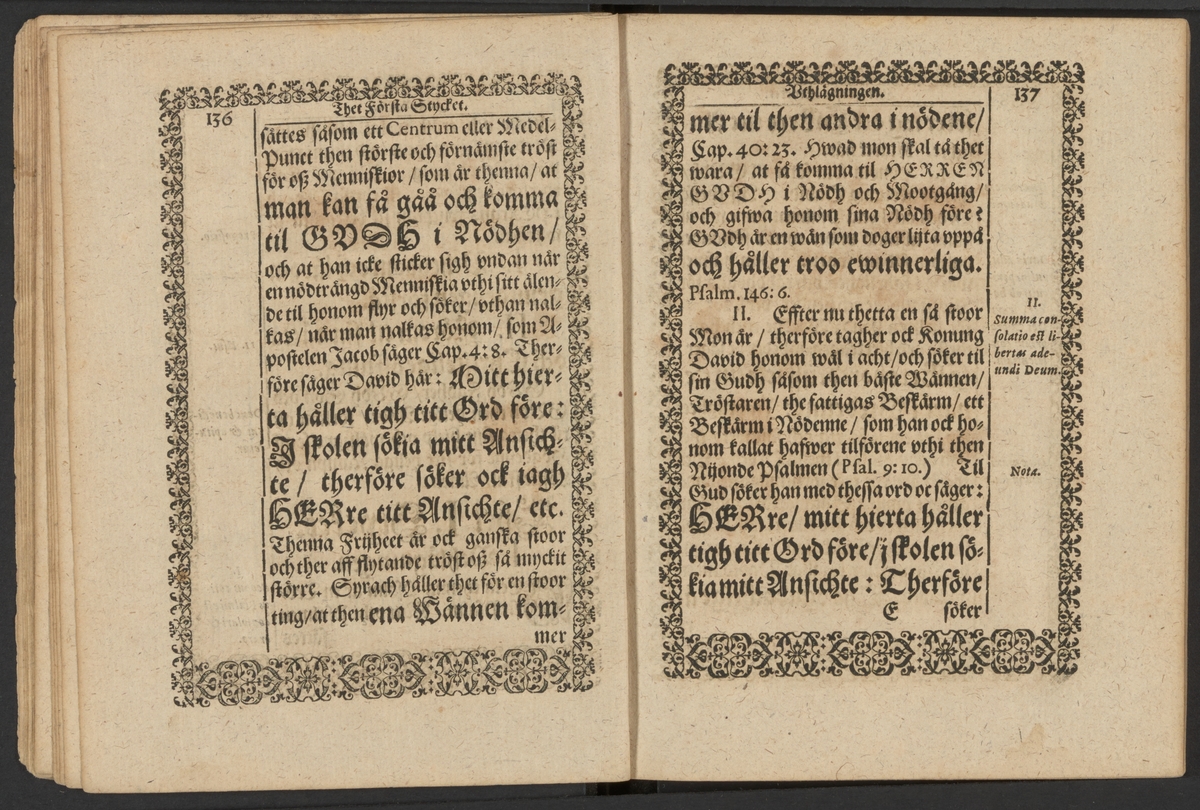 136
Thet Första Stycket.
sättes såsom ett Centrum eller Medel-
Punct then störste och förnämste tröst
för oß Menniskior / som är thenna / at
man kan få gåå och komma
til GVDH i Nödhen /
och at han icke sticker sigh vndan när
en nödträngd Menniskia vthi sitt älen-
de til honom flyr och söker / vthan nal-
kas / när man nalkas honom / som A-
postelen Jacob säger Cap. 4: 8. Ther-
före säger David här: Mitt hier-
ta håller tigh titt Ord före:
J skolen sökia mitt Ansich-
te / therföre söker ock iagh
HERre titt Ansichte / etc.
Thenna Frijheet är ock ganska stoor
och ther aff flytande tröst oß så myckit
större. Syrach håller thet för en stoor
ting / at then ena Wännen kom-
mer
Vthlägningen.
137
mer til then andra i nödene /
Cap. 40: 23. Hwad mon skal tå thet
wara / at få komma til HERREN
GVDH i Nödh och Mootgång /
och gifwa honom sina Nödh före?
GVdh är en wän som doger lijta vppå
och håller troo ewinnerliga.
Psalm. 146: 6.
II. Effter nu thetta en så stoor
Mon är / therföre tagher ock Konung
David honom wäl i acht / och söker til
sin Gudh såsom then bäste Wännen /
Tröstaren / the fattigas Beskärm / ett
Beskärm i Nödenne / som han ock ho-
nom kallat hafwer tilförene vthi then
Nijonde Psalmen (Psal. 9: 10.) Til
Gud söker han med thessa ord oc säger:
HERre / mitt hierta håller
tigh titt Ord före / j skolen sö-
kia mitt Ansichte: Therföre
E söker
II.
Summa con-
solatio est li-
bertas ade-
undi Deum.
Nota.